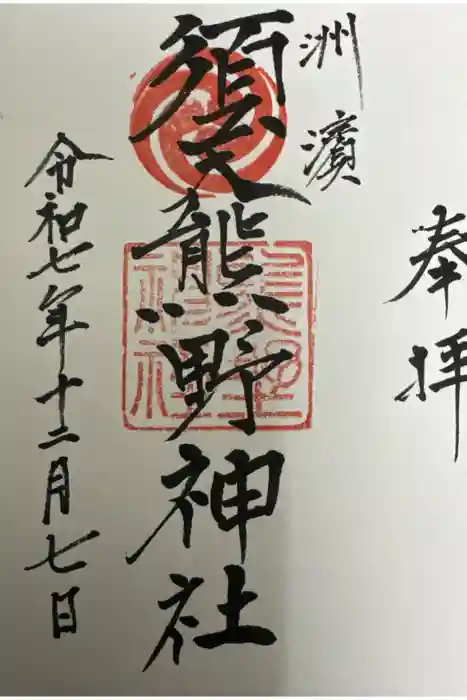 奉拝
洲濱
須 熊野神社
令和七年十二月七日